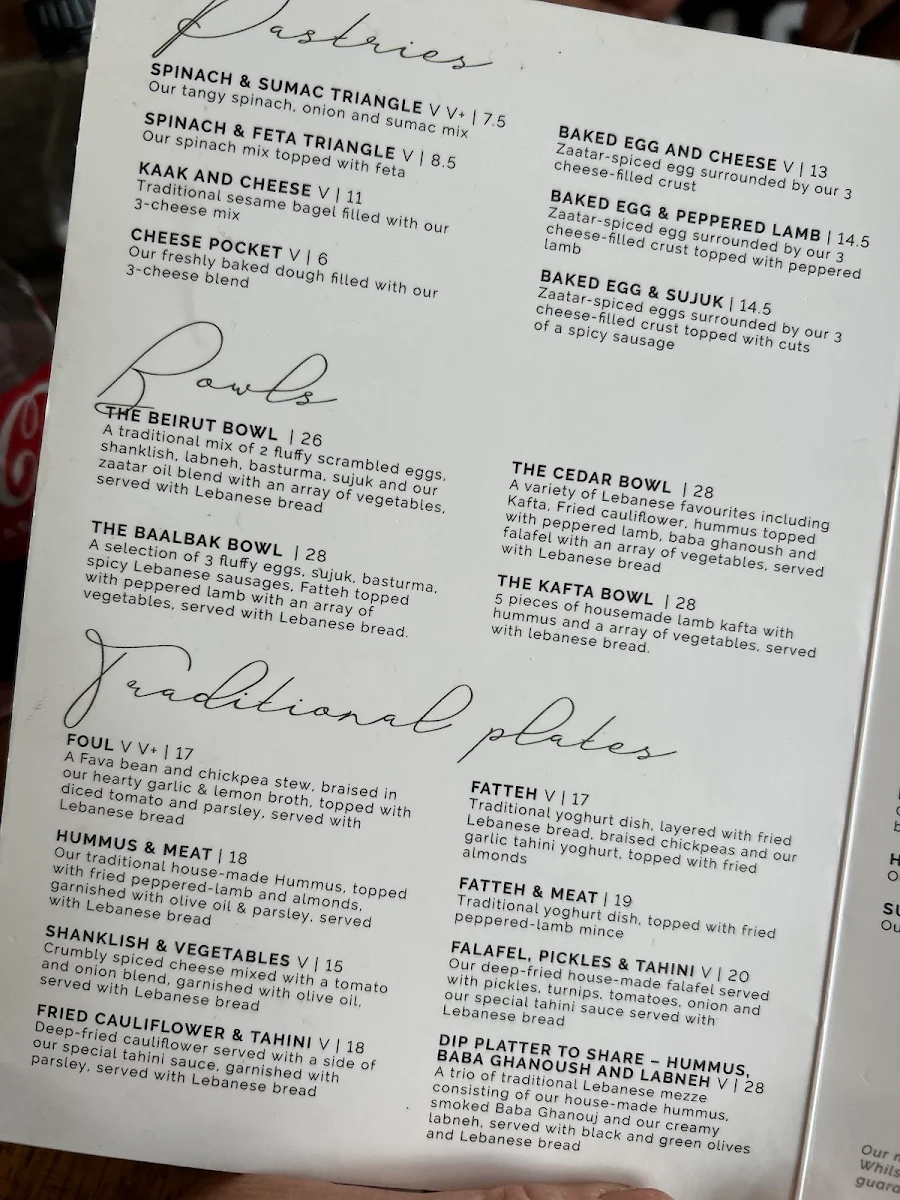 Pastries
SPINACH & SUMAC TRIANGLE V V+ | 7.5
Our tangy spinach, onion and sumac mix
SPINACH & FETA TRIANGLE V | 8.5
Our spinach mix topped with feta
KAAK AND CHEESE V | 11
Traditional sesame bagel filled with our
3-cheese mix
CHEESE POCKET V | 6
Our freshly baked dough filled with our
3-cheese blend
BAKED EGG AND CHEESE V | 13
Zaatar-spiced egg surrounded by our 3
cheese-filled crust
BAKED EGG & PEPPERED LAMB | 14.5
Zaatar-spiced egg surrounded by our 3
cheese-filled crust topped with peppered
lamb
BAKED EGG & SUJUK | 14.5
Zaatar-spiced eggs surrounded by our 3
cheese-filled crust topped with cuts
of a spicy sausage
Bowls
THE BEIRUT BOWL | 26
A traditional mix of 2 fluffy scrambled eggs,
shanklish, labneh, basturma, sujuk and our
zaatar oil blend with an array of vegetables,
served with Lebanese bread
THE BAALBAK BOWL | 28
A selection of 3 fluffy eggs, sujuk, basturma,
spicy Lebanese sausages, Fatteh topped
with peppered lamb with an array of
vegetables, served with Lebanese bread.
THE CEDAR BOWL | 28
A variety of Lebanese favourites including
Kafta, Fried cauliflower, hummus topped
with peppered lamb, baba ghanoush and
falafel with an array of vegetables, served
with Lebanese bread
THE KAFTA BOWL | 28
5 pieces of housemade lamb kafta with
hummus and a array of vegetables, served
with lebanese bread.
Traditional plates
FOUL V V+ | 17
A Fava bean and chickpea stew, braised in
our hearty garlic & lemon broth, topped with
diced tomato and parsley, served with
Lebanese bread
HUMMUS & MEAT | 18
Our traditional house-made Hummus, topped
with fried peppered-lamb and almonds,
garnished with olive oil & parsley, served
with Lebanese bread
SHANKLISH & VEGETABLES V | 15
Crumbly spiced cheese mixed with a tomato
and onion blend, garnished with olive oil,
served with Lebanese bread
FRIED CAULIFLOWER & TAHINI V | 18
Deep-fried cauliflower served with a side of
our special tahini sauce, garnished with
parsley, served with Lebanese bread
FATTEH V | 17
Traditional yoghurt dish, layered with fried
Lebanese bread, braised chickpeas and our
garlic tahini yoghurt, topped with fried
almonds
FATTEH & MEAT | 19
Traditional yoghurt dish, topped with fried
peppered-lamb mince
FALAFEL, PICKLES & TAHINI V | 20
Our deep-fried house-made falafel served
with pickles, turnips, tomatoes, onion and
our special tahini sauce served with
Lebanese bread
DIP PLATTER TO SHARE – HUMMUS,
BABA GHANOUSH AND LABNEH V | 28
A trio of traditional Lebanese mezze
consisting of our house-made hummus,
smoked Baba Ghanouj and our creamy
labneh, served with black and green olives
and Lebanese bread
Our
Whils
guara